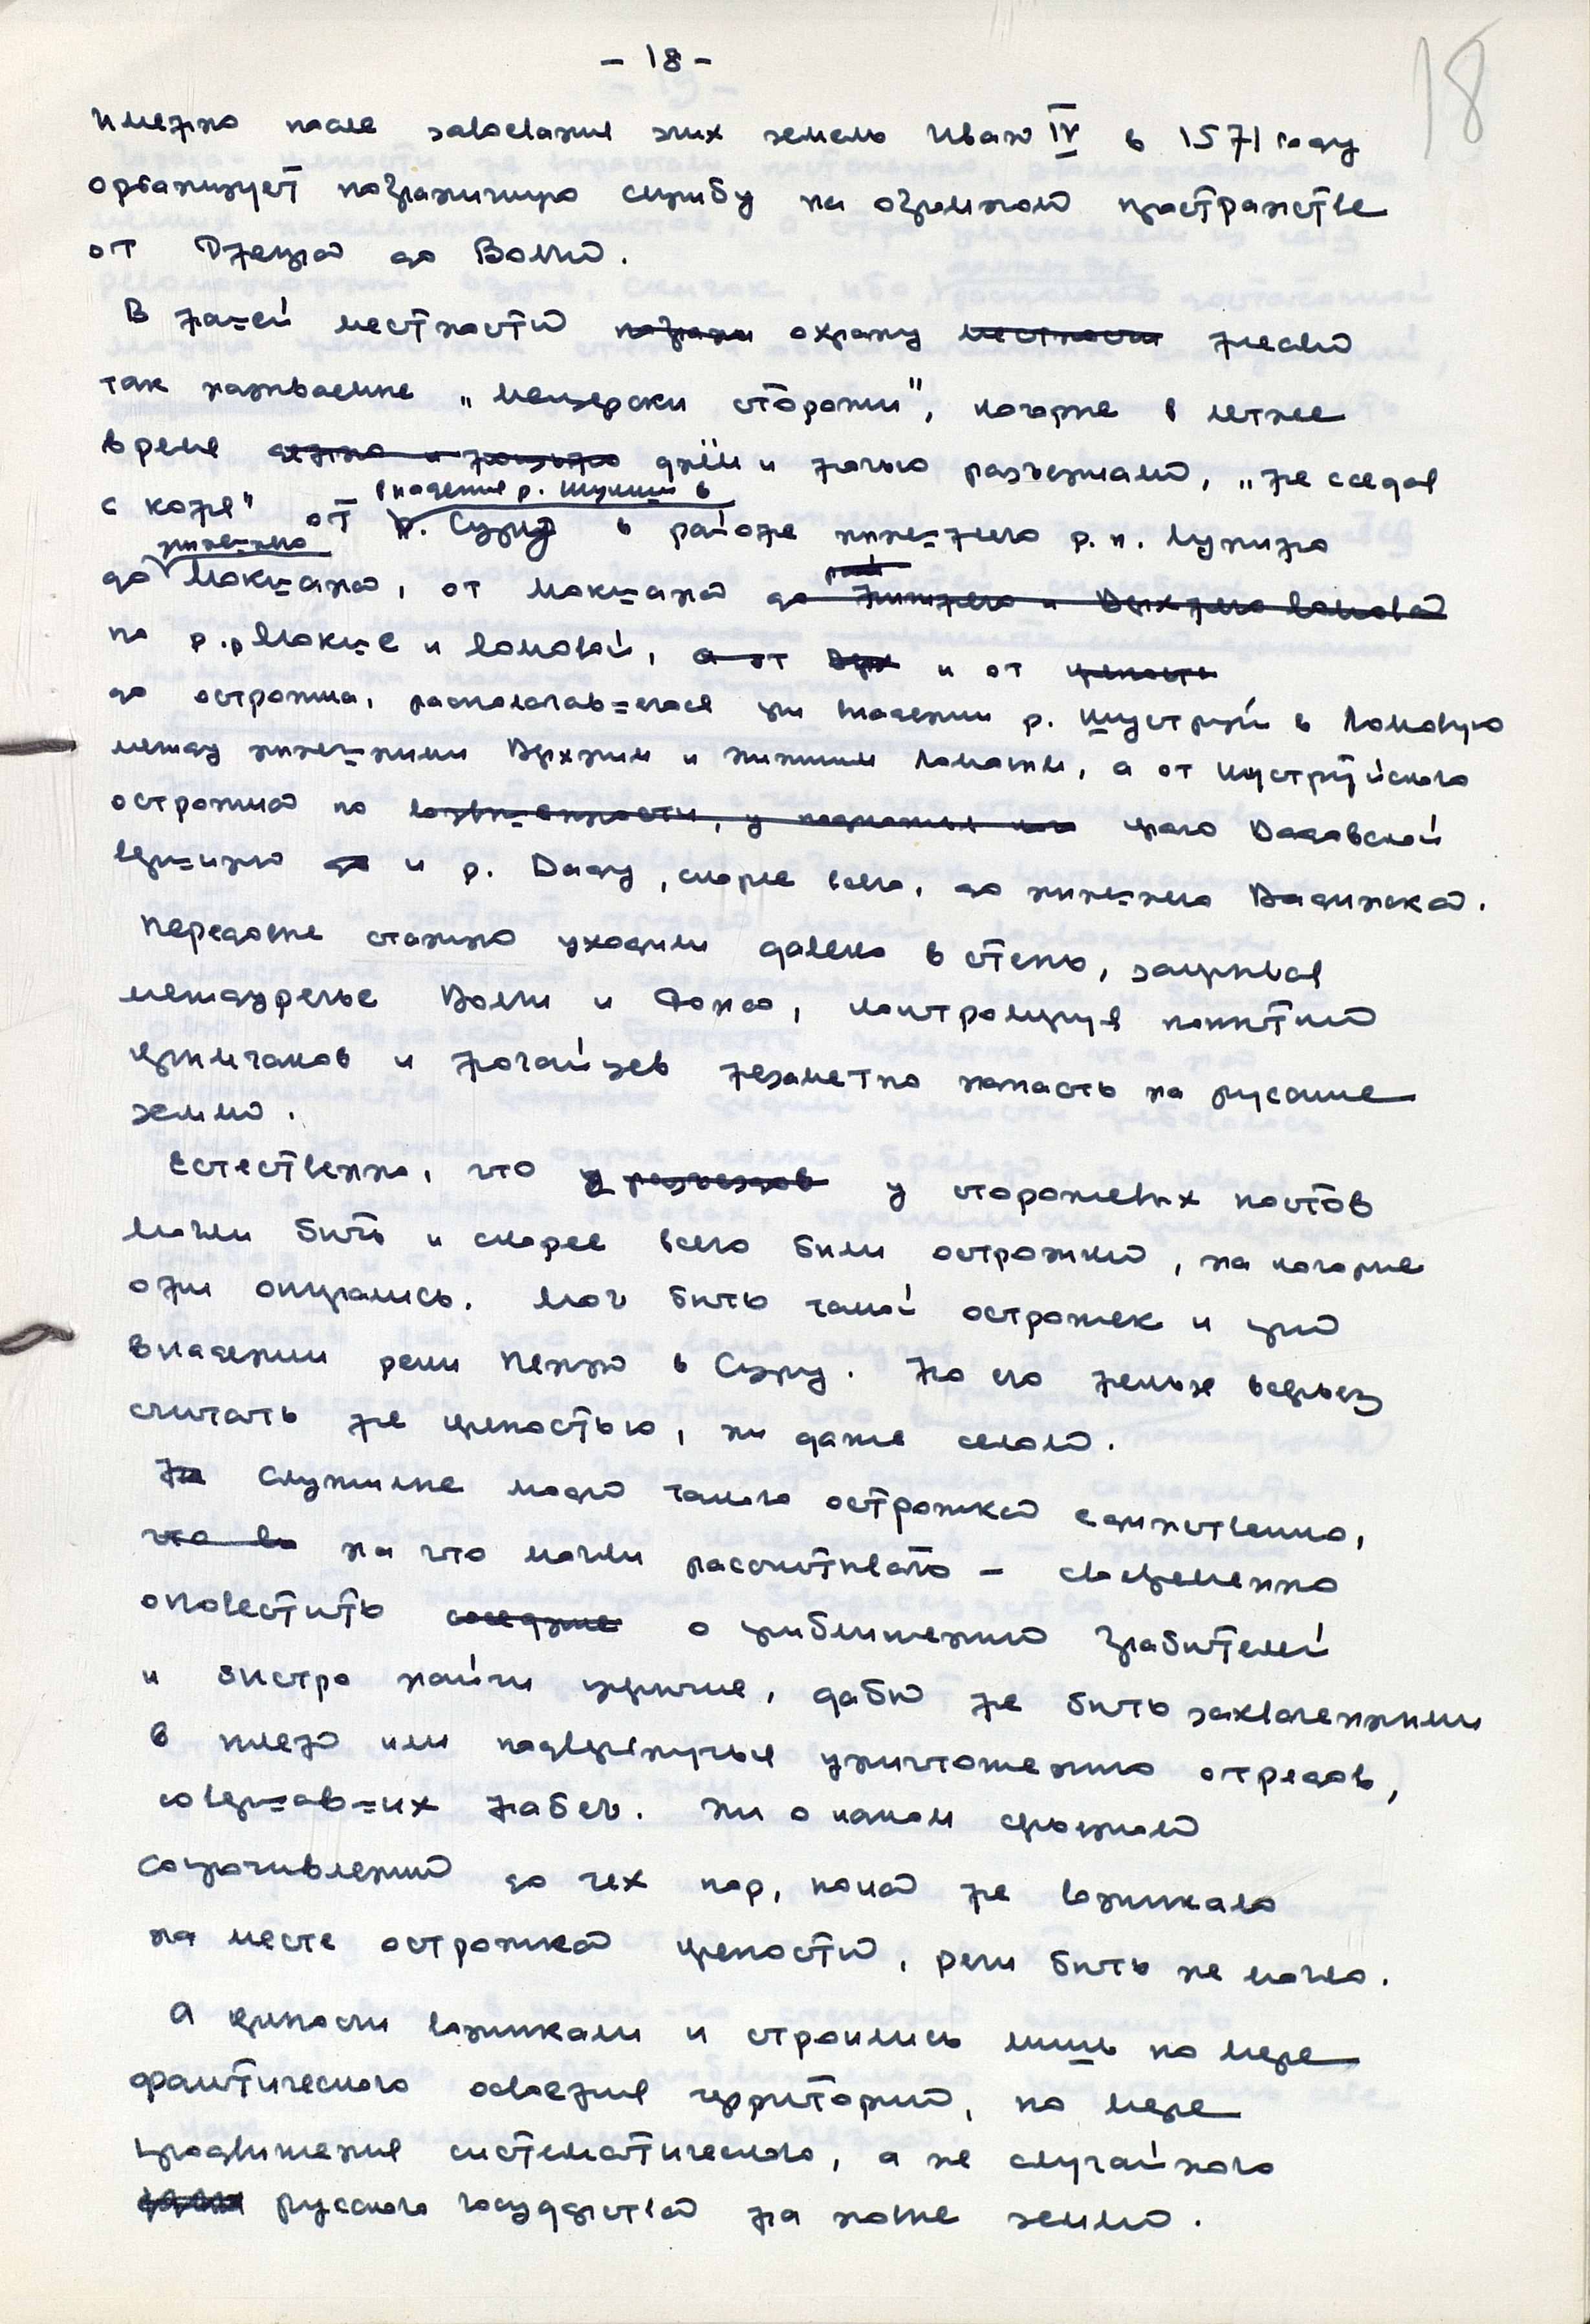 - 18 -
18
Именно после завоевания этих земель Иван IV в 1571 году
организует пограничную службу на огромном пространстве
от Днепра до Волги.
В нашей местности погран охрану местности несли
так называемые „мещерски сторожи", которые в летнее
время денно и нощно днём и ночью разъезжали, „не сседая
с коня" от впадения р. Шукши в р. Суру в районе нынешнего р.п. Лунино
до нынешнего Мокшана, от Мокшана до Нижнего и Верхнего Ломова
по р.р Мокше и Ломовой, а от Верх и от крепости
до острожка, располагавшегося при впадении р. Шуструй в Ломовую
между нынешними Верхним и Нижним Ломовым, а от Шуструйского
острожка по возвышенности, у подножья кого краю Вадовской
вершины до и р. Ваду, скорее всего, до нынешнего Вадинска.
Передовые станицы уходили далеко в степь, закрывая
междуречье Волги и Дона, контролируя попытки
крымчаков и ногайцев незаметно напасть на русские
земли.
Естественно, что у разъездов у сторожевых постов
могли быть и скорее всего были острожки, на которые
они опирались. Мог быть такой острожек и при
впадении реки Пензы в Суру. Но его нельзя всерьез
считать не крепостью, ни даже селом.
Не Служилые люди такого острожка единственно,
что во на что могли рассчитывать - своевременно
оповестить соседние о приближении грабителей
и быстро найти укрытие, дабы не быть захваченными
в плен или подвергнуться уничтожению отрядов,
совершавших набег. Ни о каком серьезном
сопротивлении до тех пор, пока не возникало
на месте острожка крепости, речи быть не могло.
А крепости возникали и строились лишь по мере
фактического освоения территории, по мере
продвижения систематического, а не случайного
русского государства на новые земли.